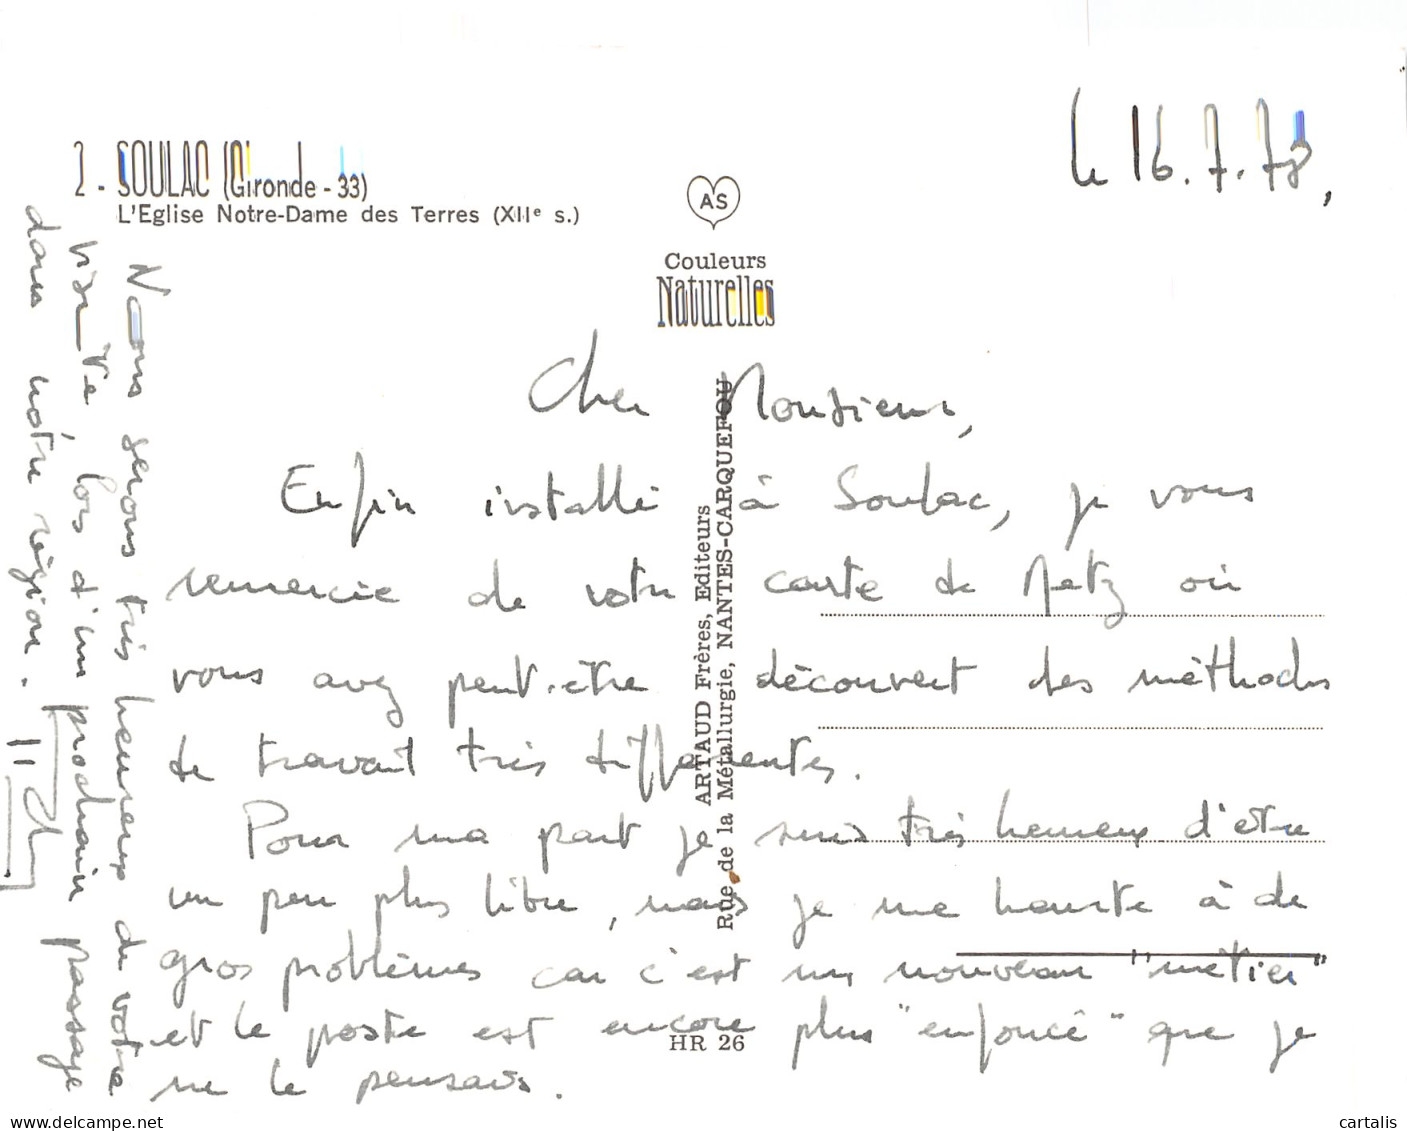 2 - SOULAC (Gironde - 33)
L'Eglise Notre-Dame des Terres (XIIe s.)
AS
Couleurs
Naturelles
le 16.7.78,
Cher Monsieur,
Enfin installé à Soulac, je vous
remercie de votre carte de Metz où
vous avez peut-être découvert des méthodes
de travail très différentes.
Pour ma part je suis très heureux d'être
un peu plus libre, mais je me heurte à de
gros problèmes car c'est un nouveau "métier"
et le poste est encore plus "enfoncé" que je
ne le pensais.
Nous serons très heureux de votre
visite, lors d'un prochain passage
dans notre région.
ARTAUD Frères, Editeurs
Rue de la Métallurgie, NANTES-CARQUEFOU
HR 26
www.delcampe.net
cartalis